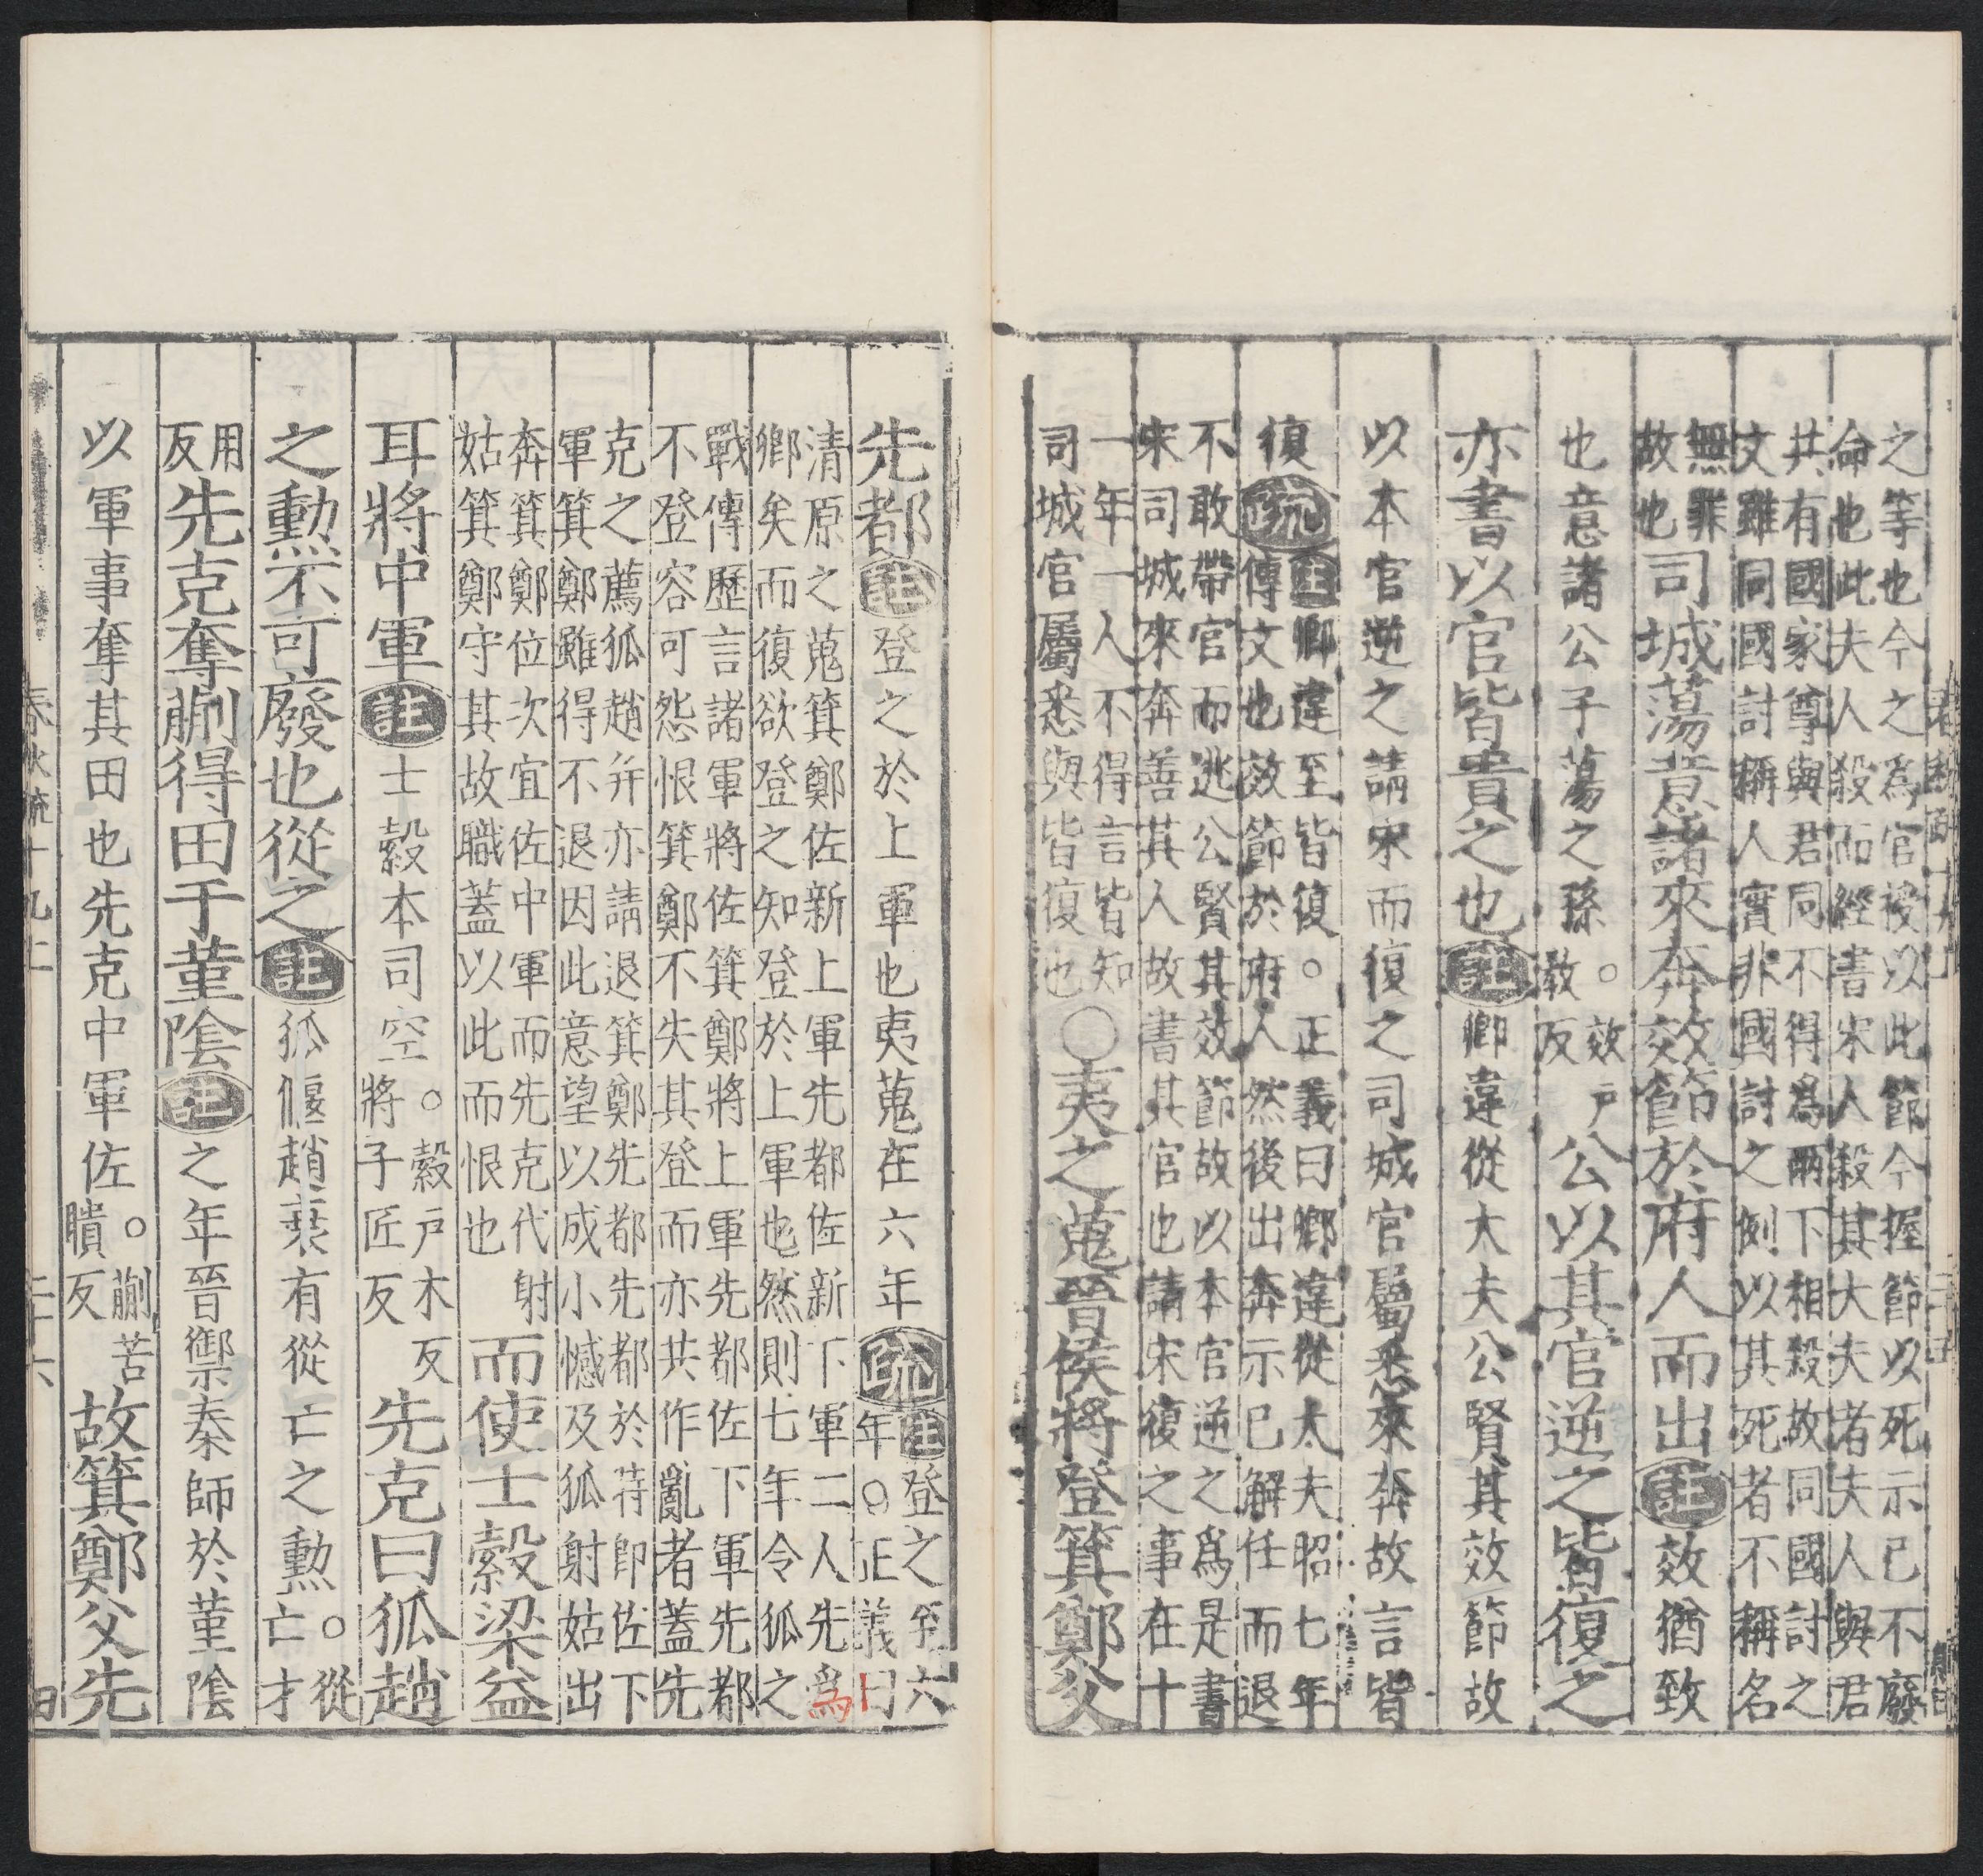 之等也今之爲官被以此節今握節以死示已不廢
命也此夫人殺而經書宋人殺其大夫者夫人與君
共有國家尊與君同不得爲兩下相殺故同國討之
文雖同國討稱人實非國討之例以其死者不稱名
無罪
故也
司城蕩意諸來奔效節於府人而出註效猶致
也意諸公子蕩之孫。效戶
教反
公以其官逆之皆復之
亦書以官皆貴之也註卿違從大夫公賢其效節故
以本官逆之請宋而復之司城官屬悉來奔故言皆
復疏
註卿違至皆復。正義曰卿違從大夫昭七年
傳文也效節於府人然後出奔示已解任而退
不敢帶官而逃公賢其效節故以本官逆之爲是書
宋司城來奔善其人故書其官也請宋復之事在十
一年一人不得言皆知
司城官屬悉與皆復也
○夷之蒐晉侯將登箕鄭父
先都註登之於上軍也夷蒐在六年疏
註登之至六
年。正義曰
清原之蒐箕鄭佐新上軍先都佐新下軍二人先爲
卿矣而復欲登之知登於上軍也然則七年令狐之
戰傳歷言諸軍將佐箕鄭將上軍先都佐下軍先都
不登容可怨恨箕鄭不失其登而亦共作亂者蓋先
克之薦狐趙并亦請退箕鄭先都先都於時即佐下
軍箕鄭雖得不退因此意望以成小憾及狐射姑出
奔箕鄭位次宜佐中軍而先克代射
姑箕鄭守其故職蓋以此而恨也
而使士縠梁益
耳將中軍註士縠本司空。縠戶木反
將子匠反
先克曰狐趙
之勳不可廢也從之註狐偃趙衰有從亡之勳。從
亡才
用
反
先克奪蒯得田于堇陰註之年晉禦秦師於堇陰
以軍事奪其田也先克中軍佐。蒯苦
聵反
故箕鄭父先
春秋疏十九 二
二十六